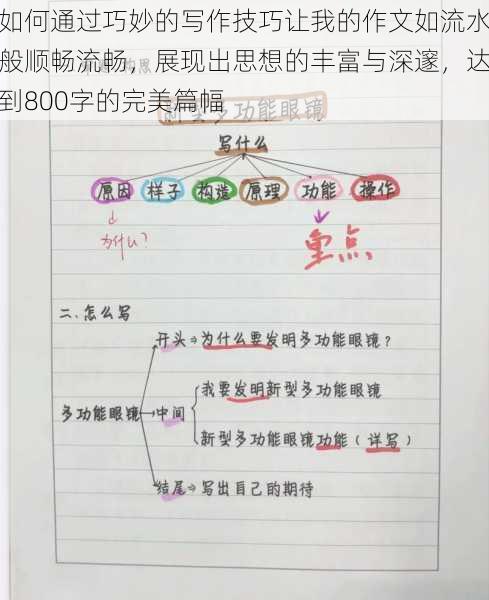 如何通过巧妙的写作技巧让我的作文如流水
般顺畅流畅，展现出思想的丰富与深邃，达
到800字的完美篇幅
新型多功能眼镜
写什么
原因 样子 构造 原理 功能 操作
为什么？
重点
二、怎么写
开头⇒为什么要发明多功能眼镜？
我要发明新型多功能眼镜
多功能眼镜 中间
新型多功能眼镜功能（详写）
结尾⇒写出自己的期待